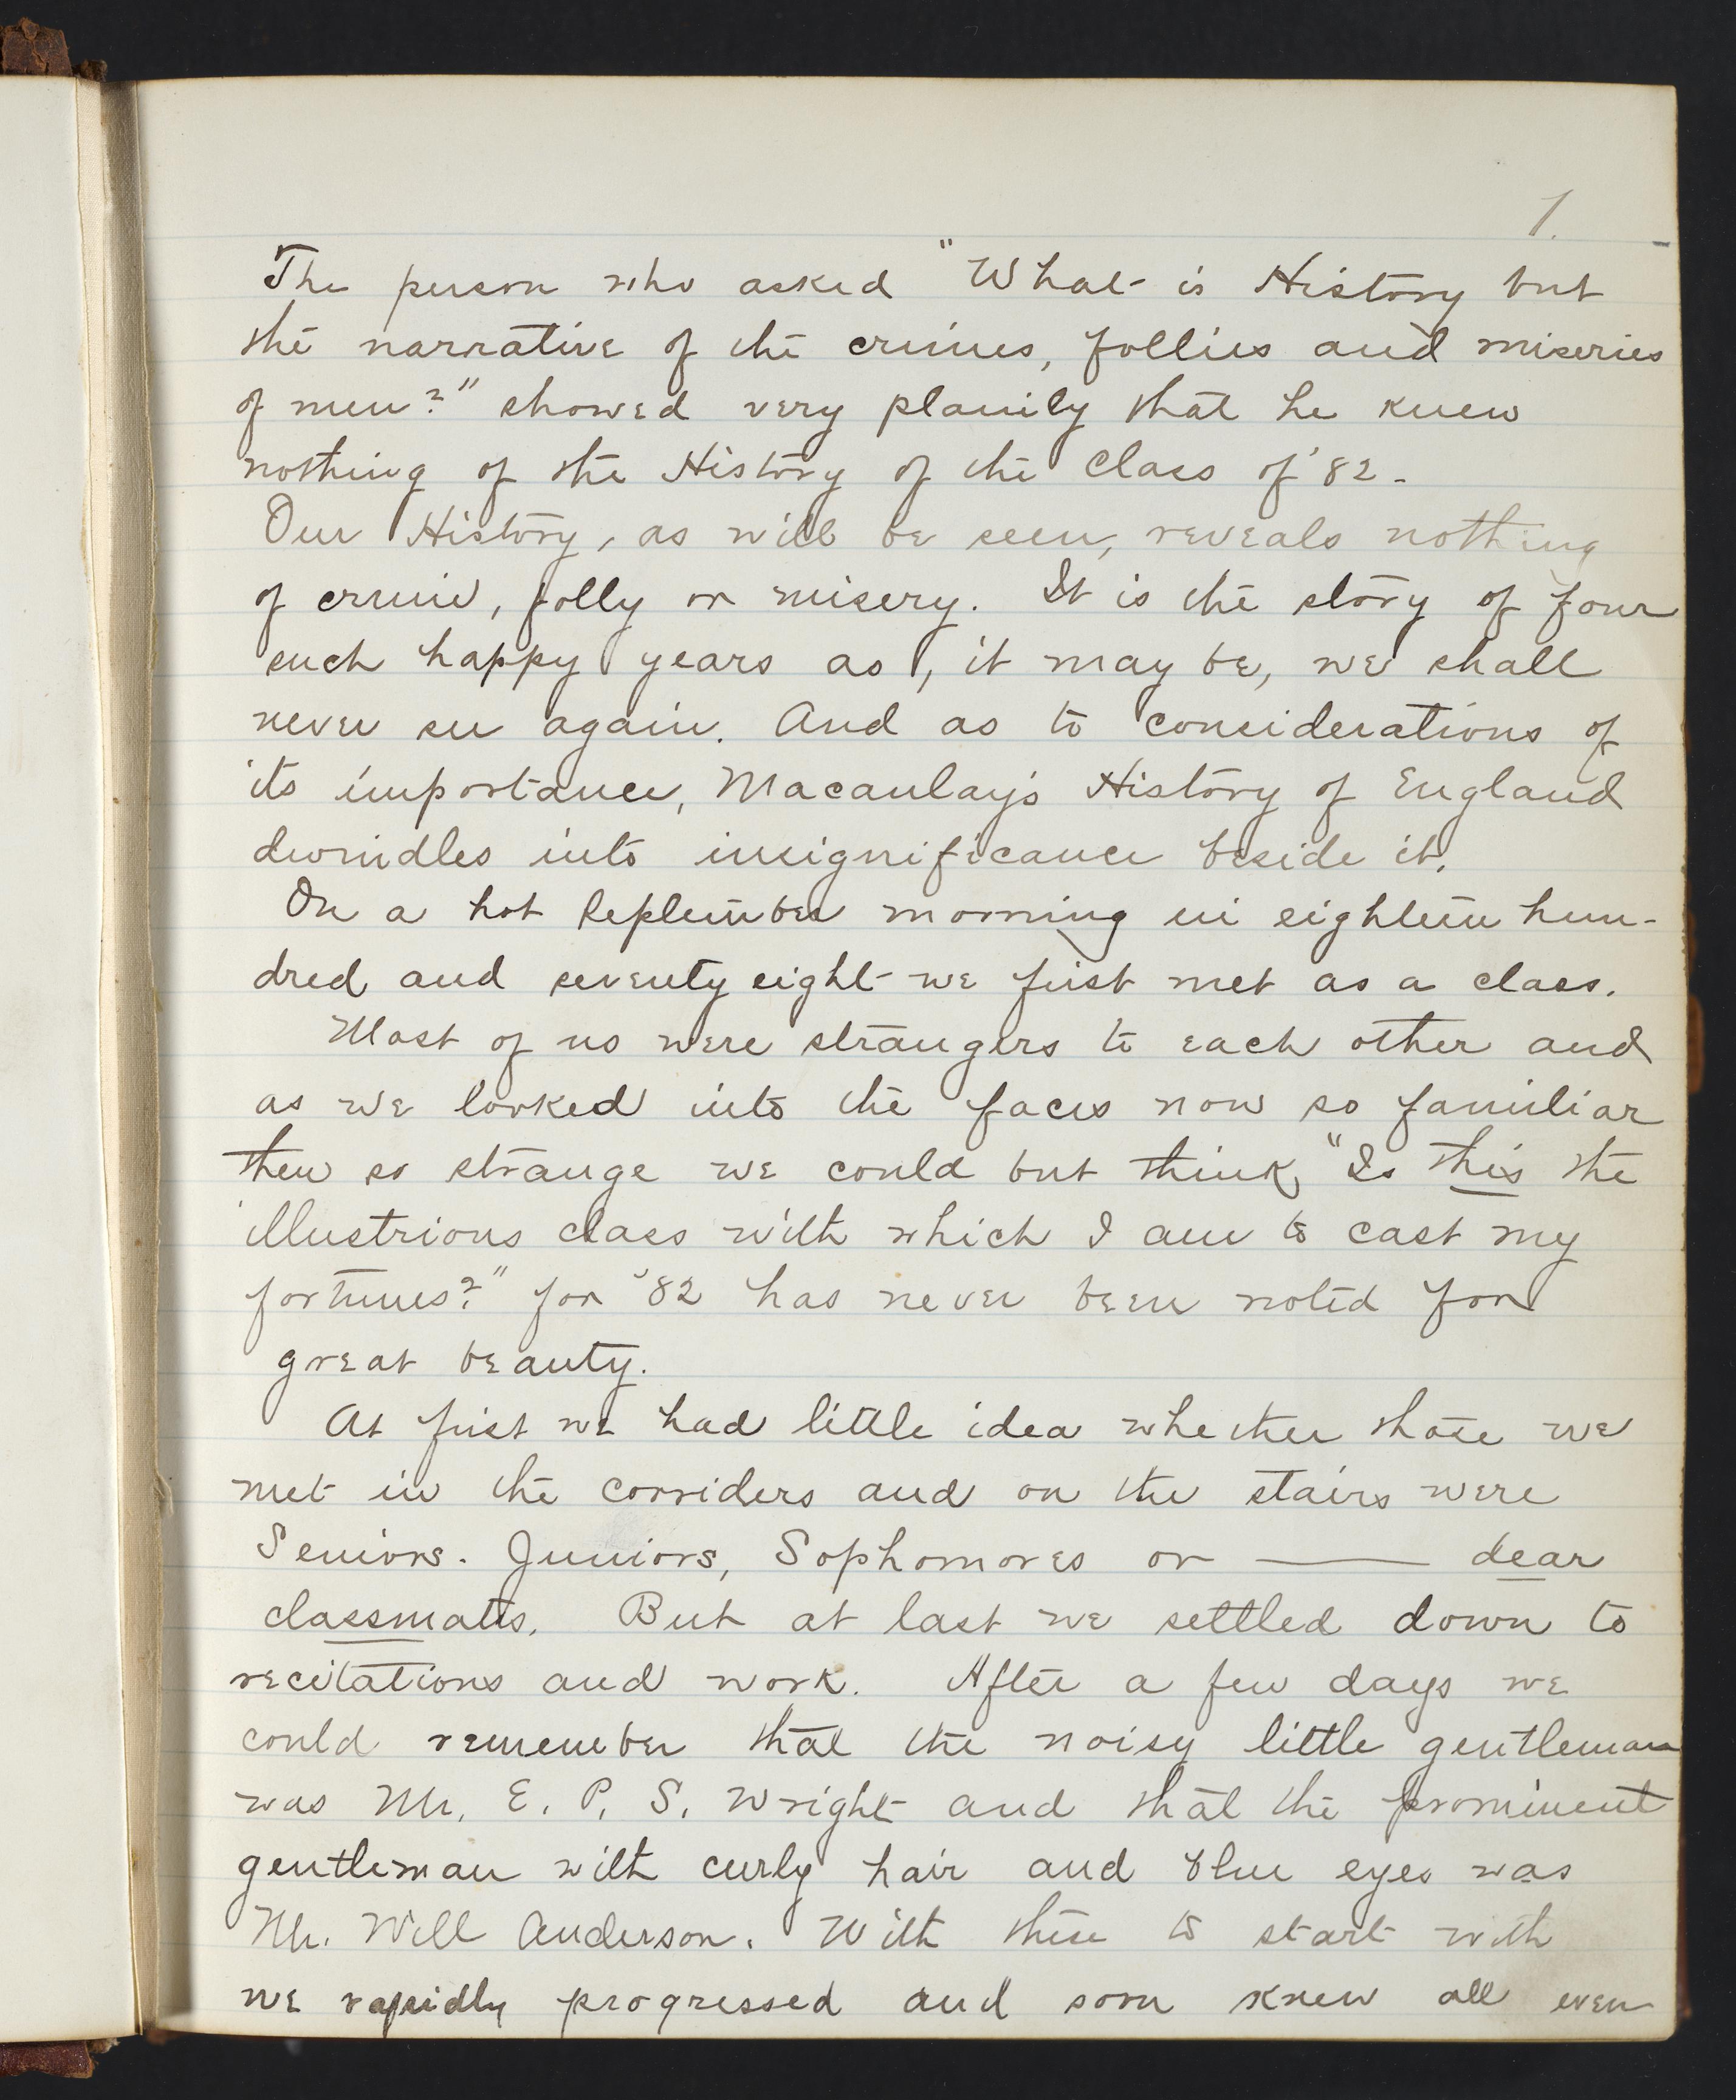 1.
The person who asked "What is History but
the narrative of the crimes, follies and miseries
of men?" showed very plainly that he knew
nothing of the History of the Class of '82.
Our History, as will be seen, reveals nothing
of crime, folly or misery. It is the story of four
such happy years as, it may be, we shall
never see again. And as to considerations of
its importance, Macaulay's History of England
dwindles into insignificance beside it.
On a hot September morning in eighteen hun-
dred and seventy eight we first met as a class.
Most of us were strangers to each other and
as we looked into the faces now so familiar
then so strange we could but think, "Is this the
illustrious class with which I am to cast my
fortunes?" for '82 has never been noted for
great beauty.
At first we had little idea whether those we
met in the corriders and on the stairs were
Seniors. Juniors, Sophomores or —— dear
classmates. But at last we settled down to
recitations and work. After a few days we
could remember that the noisy little gentleman
was Mr. E. P. S. Wright and that the prominent
gentleman with curly hair and blue eyes was
Mr. Will Anderson. With these to start with
we rapidly progressed and soon knew all even